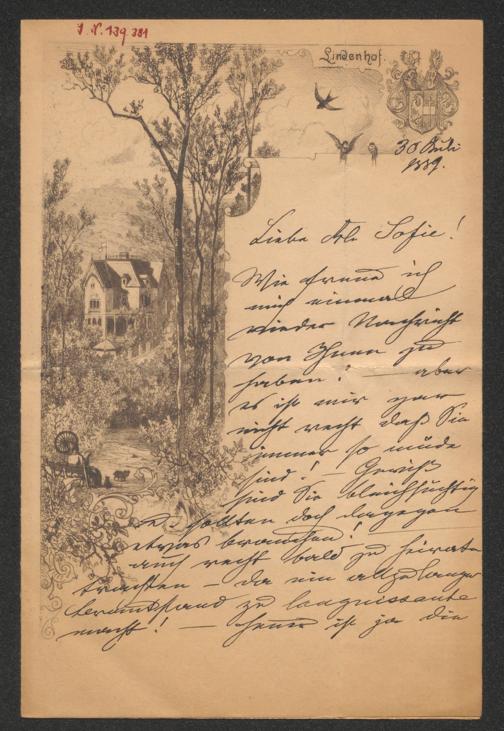 J. N. 139.381
Lindenhof.
30 Juli
1889.
Liebe Frl. Sofie!
Wie freue ich
mich einmal
wieder Nachricht
von Ihnen zu
haben! — aber
es ist mir gar
nicht recht daß Sie
immer so müde
sind! — Gewiß
sind Sie bleichsüchtig
sollten doch dagegen
etwas brauchen! —
auch recht bald zu heiraten
trachten — da ein allzulanger
Brautstand zu languissante
macht! — Heuer ist ja die